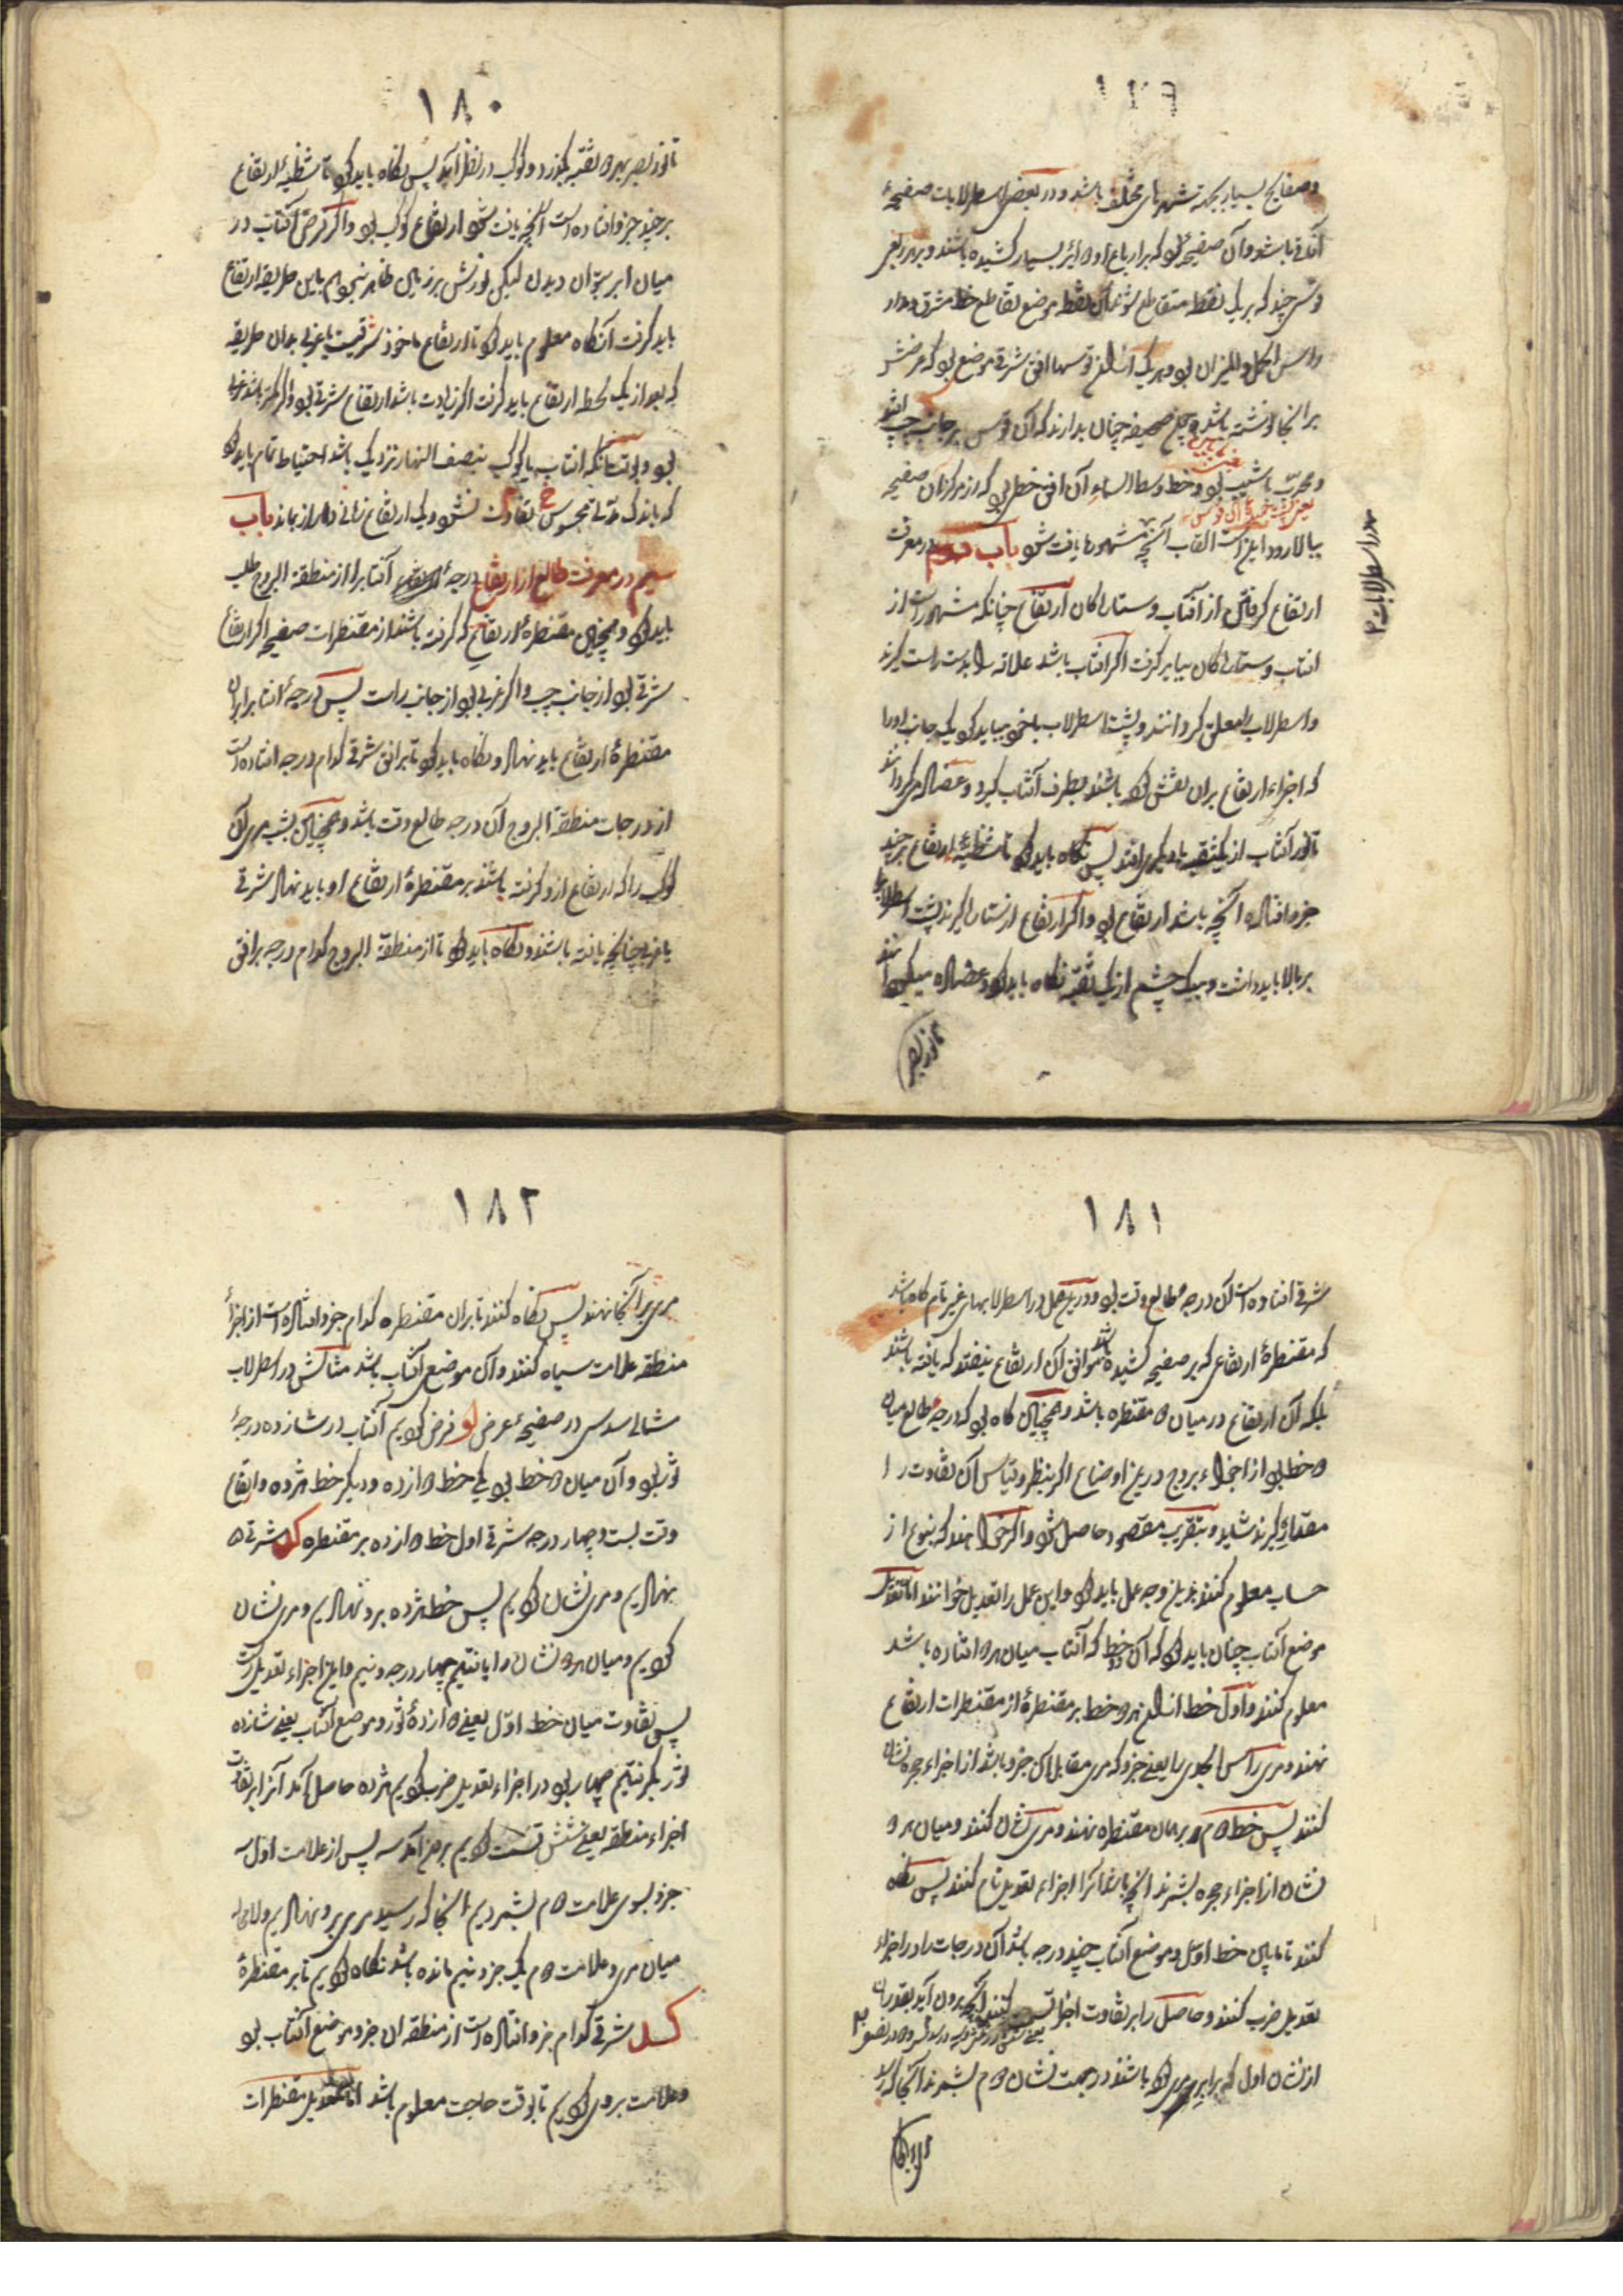 ۱۷۹
و صفایح بسیار بجهة شهرهای مختلف باشد و در بعضی اسطرلابات صفیحهٔ
آفاقی باشد و آن صفیحهٔ بود که بر ارباع او دوایر بسیار کشیده باشند و بهر ربعی
قوسی چند که بر یک نقطه متقاطع شوند آن نقطه موضع تقاطع خط مشرق و مدار
راس الحمل و المیزان بود و هر یک از آن قوسها افق شرقی موضعی بود که عرضش
بر آنجا نوشته باشد و چون صفیحه چنان بدارند که آن قوس بر جانب چپ افتد
و محدب باشیب بود و خط وسط السماء آن افق خطی بود که از مرکز آن صفیحه
یعنی پشت خمیدهٔ آن قوس
ببالا رود اینست القاب آنچه مشهور یافت شود باب دویم در معرفت
ارتفاع گرفتن از آفتاب و ستارگان ارتفاع چنانکه مشهور است از
آفتاب و ستارگان بباید گرفت اگر آفتاب باشد علاقه را بدست راست گیرند
و اسطرلاب را معلق گردانند و پشت اسطرلاب با خود بباید کرد یک جانب او را
که اجزاء ارتفاع بران نقش کرده باشند بطرف آفتاب گیرد و عضاده می گرداند
تا نور آفتاب از یک ثقبه بدیگری افتد پس نگاه باید کرد تا شظیهٔ ارتفاع بر چند
جزو افتاده آنچه باشد ارتفاع بود و اگر ارتفاع از ستاره گیرند پشت اسطرلاب را
بر بالا باید داشت و بیک چشم از یک ثقبه نگاه باید کرد و عضاده میگردانند
تا نور بصر
در اسطرلابات
۱۸۰
تا نور بصر بهر دو ثقبه بگذرد و کوکب در نظر آید پس نگاه باید کرد تا شظیهٔ ارتفاع
بر چند جزو افتاده است آنچه یافت شود ارتفاع کوکب بود و اگر قرص آفتاب در
میان ابر بتوان دیدن لیکن نورش بر زمین ظاهر نبود هم باین طریقه ارتفاع
باید گرفت آنگاه معلوم باید کرد تا ارتفاع ماخوذ شرقیست یا غربی بدان طریقه
که بعد از یک لحظه ارتفاع باید گرفت اگر زیادت باشد ارتفاع شرقی بود و اگر کمتر باشد غربی
بود و بوقت آنکه آفتاب یا کوکب بنصف النهار نزدیک باشد احتیاط تمام باید کرد
که باندک مدتی محسوس تفاوت نشود و یک ارتفاع زمانی دراز بماند باب
سیم در معرفت طالع از ارتفاع درجهٔ آفتاب را از منطقة البروج طلب
باید کرد و همچنین مقنطرهٔ ارتفاعی که گرفته باشند از مقنطرات صفیحه اگر ارتفاع
شرقی بود از جانب چپ و اگر غربی بود از جانب راست پس درجهٔ آفتاب بران
مقنطرهٔ ارتفاع باید نهاد و نگاه باید کرد تا بر افق شرقی کدام درجه افتاده است
از درجات منطقة البروج آن درجه طالع وقت باشد و همچنین بشب مری آن
کوکب را که ارتفاع ازو گرفته باشند بر مقنطرهٔ ارتفاع او باید نهاد شرقی
یا غربی چنانچه یافته باشند و نگاه باید کرد تا از منطقة البروج کدام درجه بر افق
۱۸۱
شرقی افتاده است آن درجه طالع وقت بود و درین عمل در اسطرلابهای غیر تام گاه باشد
که مقنطرهٔ ارتفاعی که بر صفیحه کشیده باشند موافق آن ارتفاع نیفتد که یافته باشند
بلکه آن ارتفاع در میان دو مقنطره باشد و همچنین گاه بود که درجه طالع میان
دو خط بود از اجزاء بروج درین اوضاع اگر بنظر و قیاس آن تفاوت را
مقداری گیرند شاید و بتقریب مقصود حاصل شود و اگر خواهند که بنوعی از
حساب معلوم کنند بدین وجه عمل باید کرد و این عمل را تعدیل خوانند اما تعدیل
موضع آفتاب چنان باید کرد که آن دو خط که آفتاب میان هر دو افتاده باشد
معلوم کنند و اول خط از آن هر دو خط بر مقنطرهٔ از مقنطرات ارتفاع
نهند و مری راس الجدی را یعنی جزو که مری مقابل آن جزو باشد از اجزاء حجره نشان
کنند پس خط دوم بر همان مقنطره نهند و مری نشان کنند و میان هر دو
نشان از اجزاء حجره بشمرند آنچه باشد آنرا اجزاء تعدیل نام کنند پس نگاه
کنند تا میان خط اول و موضع آفتاب چند درجه باشد آن درجات را در اجزاء
تعدیل ضرب کنند و حاصل را بر تفاوت اجزا قسمت کنند آنچه بیرون آید بقدر آن
از نشان اول که برابر مری کرده باشند در جهت نشان دوم بشمرند آنجا که رسد
مری بر آنجا
۱۸۲
مری بر آنجا نهند پس نگاه کنند تا بران مقنطره کدام جزو افتاده است از اجزاء
منطقه علامت سیاه کنند و آن موضع آفتاب باشد مثالش در اسطرلاب
شمالی سدسی در صفیحهٔ عرض لو فرض کردیم آفتاب در شانزده درجهٔ
ثور بود و آن میان دو خط بود یکی خط دوازده و دیگر خط هژده و ارتفاع
وقت بیست و چهار درجه شرقی اول خط دوازده بر مقنطره کد شرقی
نهادیم و مری نشان کردیم پس خط هژده برو نهادیم و مری نشان
کردیم و میان هر دو نشان را یافتیم چهار درجه و نیم و این اجزاء تعدیل است
پس تفاوت میان خط اول یعنی دوازدهٔ ثور و موضع آفتاب یعنی شانزده
ثور بگرفتیم چهار بود در اجزاء تعدیل ضرب کردیم هژده حاصل آمد آنرا بر تفاوت
اجزاء منطقه یعنی شش قسمت کردیم بیرون آمد سه پس از علامت اول سه
جزو بسوی علامت دوم بشمردیم آنجا که رسید مری برو نهادیم و لامحاله
میان مری و علامت دوم یک جزو و نیم مانده باشد نگاه کردیم تا بر مقنطرهٔ
کد شرقی کدام جزو افتاده است از منطقه آن جزو موضع آفتاب بود
و علامت بروی کردیم تا بوقت حاجت معلوم باشد اما تعدیل مقنطرات